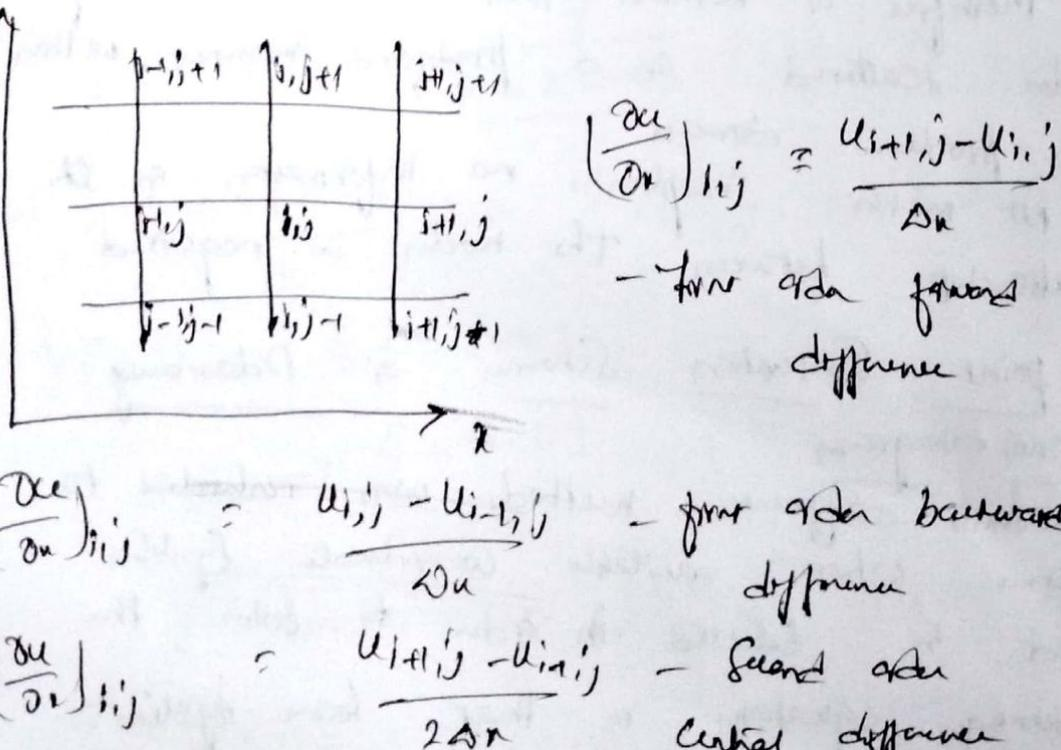 i-1,j+1 i,j+1 i+1,j+1
i-1,j i,j i+1,j
i-1,j-1 i,j-1 i+1,j-1
x
(∂u/∂x)i,j = (ui+1,j - ui,j)/Δx
- first order forward
difference
∂u/∂x)i,j = (ui,j - ui-1,j)/Δx - first order backward
difference
∂u/∂x)i,j = (ui+1,j - ui-1,j)/2Δx - Second order
Central difference